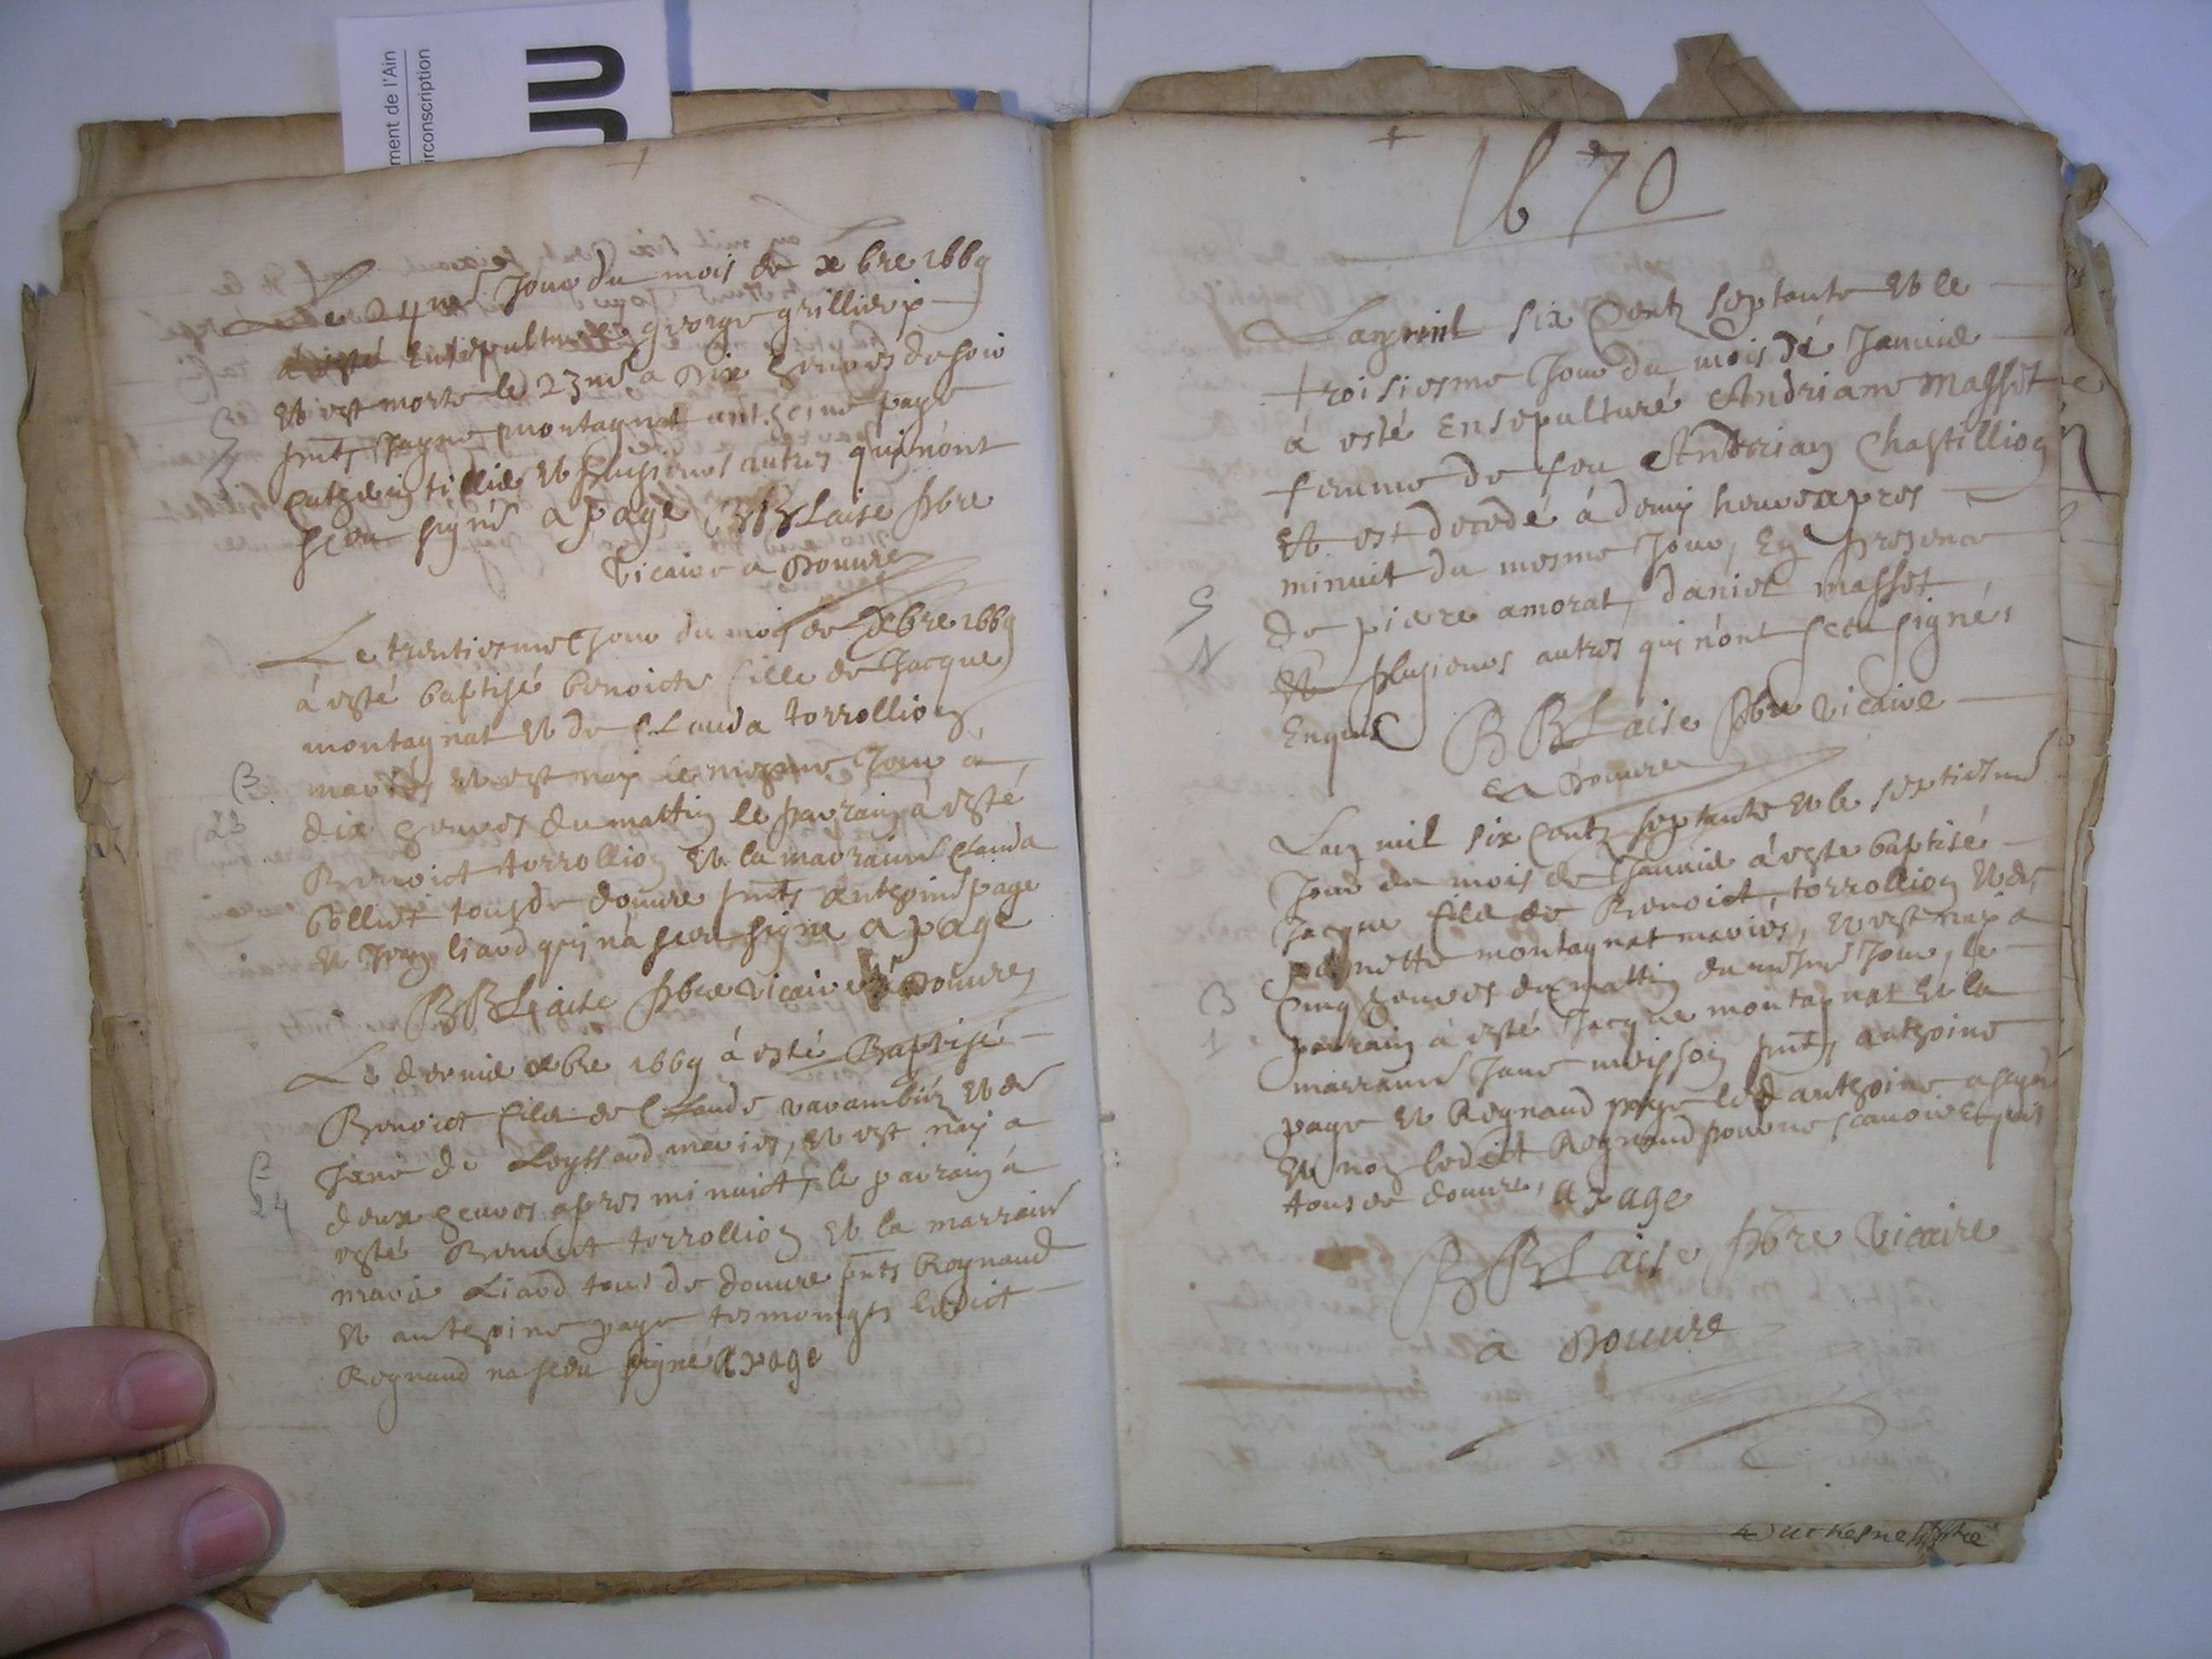 ment de l'Ain
irconscription
JU
Le 24me Jour du mois de xbre 1669
a esté Ensepulturé george grillier
Et est morte le 23me a Dix heures de soir
pnts Jayme montagnat anthoine page
Cathelin tillier Et plusieurs autres qui n'ont
sceu signé a page B BLaise pbre
vicaire a Douure
Le trentiesme Jour du mois de xbre 1669
à esté baptisé benoicte fille de Jacque
montagnat Et de Clauda torrollion
mariés Et est nay le mesme Jour à
dix heures du mattin le parrain à esté
Benoict torrollion Et la marraine Clauda
bolliet tous de douure pnts anthoine page
Et Jean liard qui n'à sceu signe a page
B BLaise pbre vicaire à Douure
Le dernier xbre 1669 à esté Baptisé
Benoict fils de Claude varambon Et de
Jane de Leyssard mariés, Et est nay a
deux heures apres minuict, le parrain à
esté Benoict torrollion Et la marraine
marie Liard tous de douure pnts Reynaud
Et anthoine page tesmoings ledict
Reynaud na sceu signé a page
S
B
23
B
24
1670
Lan mil six Centz septante Et le
troisiesme Jour du mois de Januier
à esté Ensepulturé Andriane Masset
femme de feu Andrian Chastillion
Et est decedé à demy heure apres
minuit du mesme Jour, En presence
de pierre amorat, daniel masset
Et plusieurs autres qui n'ont sceu signés
Enquis B BLaise pbre vicaire
a Douure
Lan mil six Centz septante Et le septiesme
Jour du mois de Januier à este baptisé
Jacque fils de Benoict torrollion Et de
pernette montagnat mariés, Et est nay à
Cinq heures du mattin du mesme Jour, le
parrain à esté Jacque montagnat Et la
marraine Jane moisson pnts, anthoine
page Et Reynaud page led anthoine a signé
Et non ledict Reynaud pour ne scauoir Enquis
tous de douure, a page
B BLaise pbre vicaire
à Douure
S
1
B
1
Duchesne